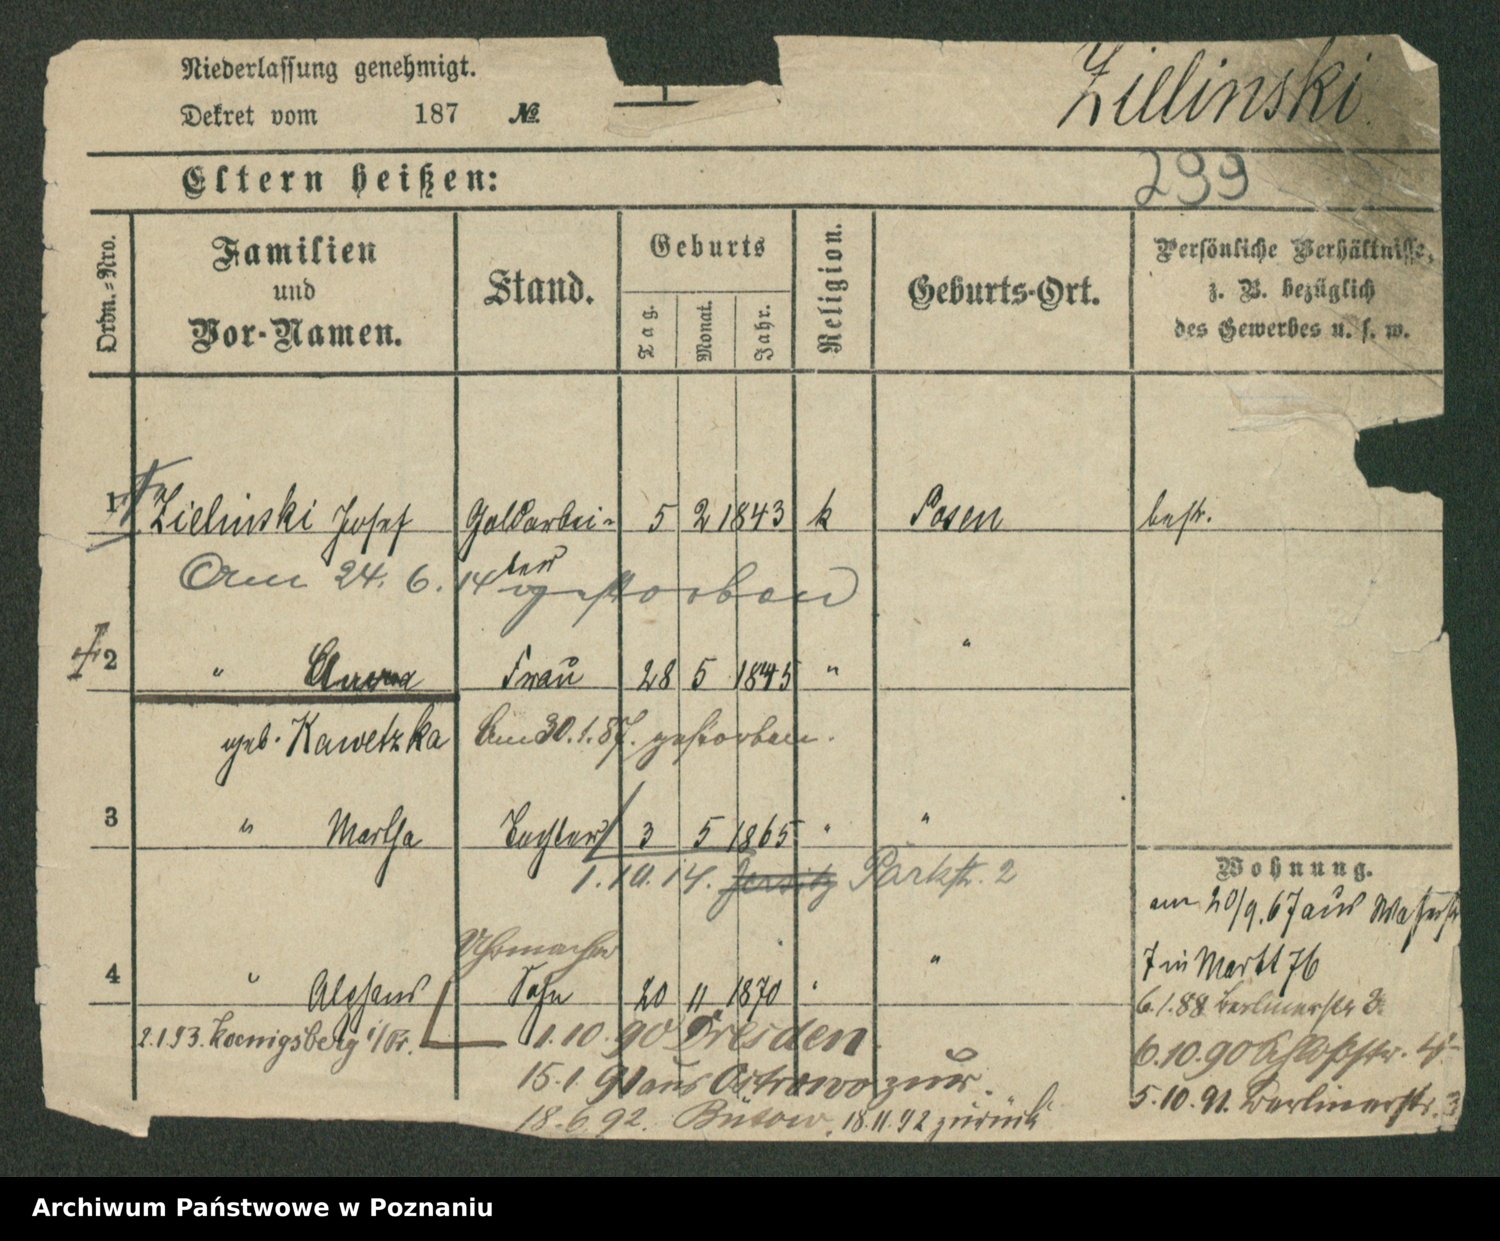 Niederlassung genehmigt.
Dekret vom 187 №
Zielinski
Eltern heißen:
299
Ordn.-Nro.
Familien
und
Vor-Namen.
Stand.
Geburts
Tag.
Monat.
Jahr.
Religion.
Geburts-Ort.
Persönliche Verhältnisse,
z. B. bezüglich
des Gewerbes u. s. w.
1 Zielinski Josef Goldarbei- 5 2 1843 k Posen bestr.
ter
Am 24. 6. 14 gestorben
2 " Anna Frau 28 5 1845 " "
geb. Kawetzka Am 30.1.87. gestorben.
3 " Martha Tochter 3 5 1865 " "
1.10.14. Jersitz Parkstr. 2
Uhrmacher
4 " Alphons Sohn 20 11 1870 " "
2.1.93. Koenigsberg i/Pr.
1.10.90 Dresden.
15.1.91 aus Ostrowo zur.
18.6.92. Bütow. 18.11.92 zurück
Wohnung.
am 20/9.67 aus Wasserstr
7 in Markt 76
6.1.88 Berlinerstr
6.10.90 Schloßstr. 4
5.10.91. Berlinerstr. 3
Archiwum Państwowe w Poznaniu